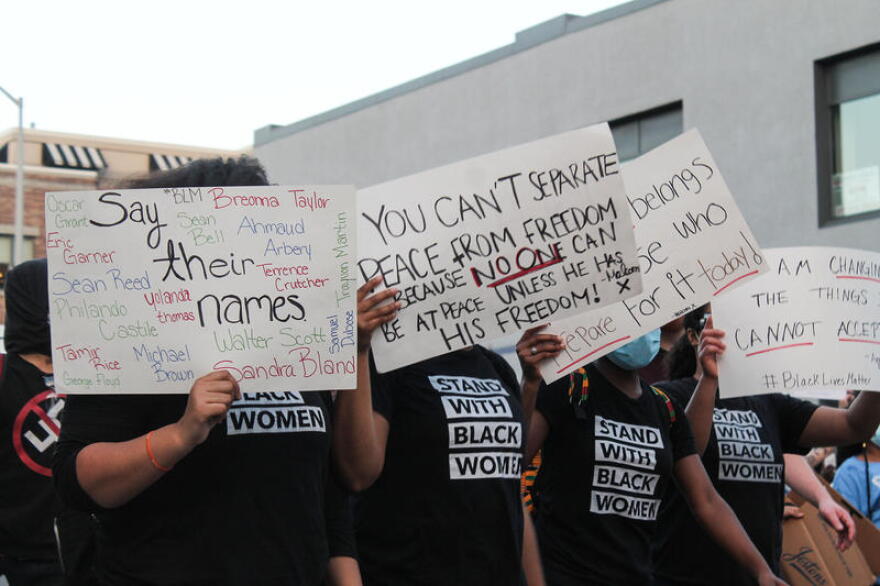 Say
their
names.
#BLM
Breonna Taylor
Oscar
Grant
Sean
Bell
Ahmaud
Arbery
Eric
Garner
Terrence
Crutcher
Trayvon Martin
Sean Reed
Yolanda
thomas
Philando
Castile
Walter Scott
Samuel
Dubose
Tamir
Rice
Michael
Brown
Sandra Bland
George Floyd
YOU CAN'T SEPARATE
PEACE FROM FREEDOM
BECAUSE NO ONE CAN
BE AT PEACE UNLESS HE HAS
HIS FREEDOM!
-Malcolm
X
belongs
who
prepare for it today
AM CHANGING
THE THINGS
CANNOT ACCEPT
#BlackLivesMatter
BLACK
WOMEN
STAND
WITH
BLACK
WOMEN
STAND
WITH
BLACK
WOMEN
STAND
WITH
BLACK
WOMEN